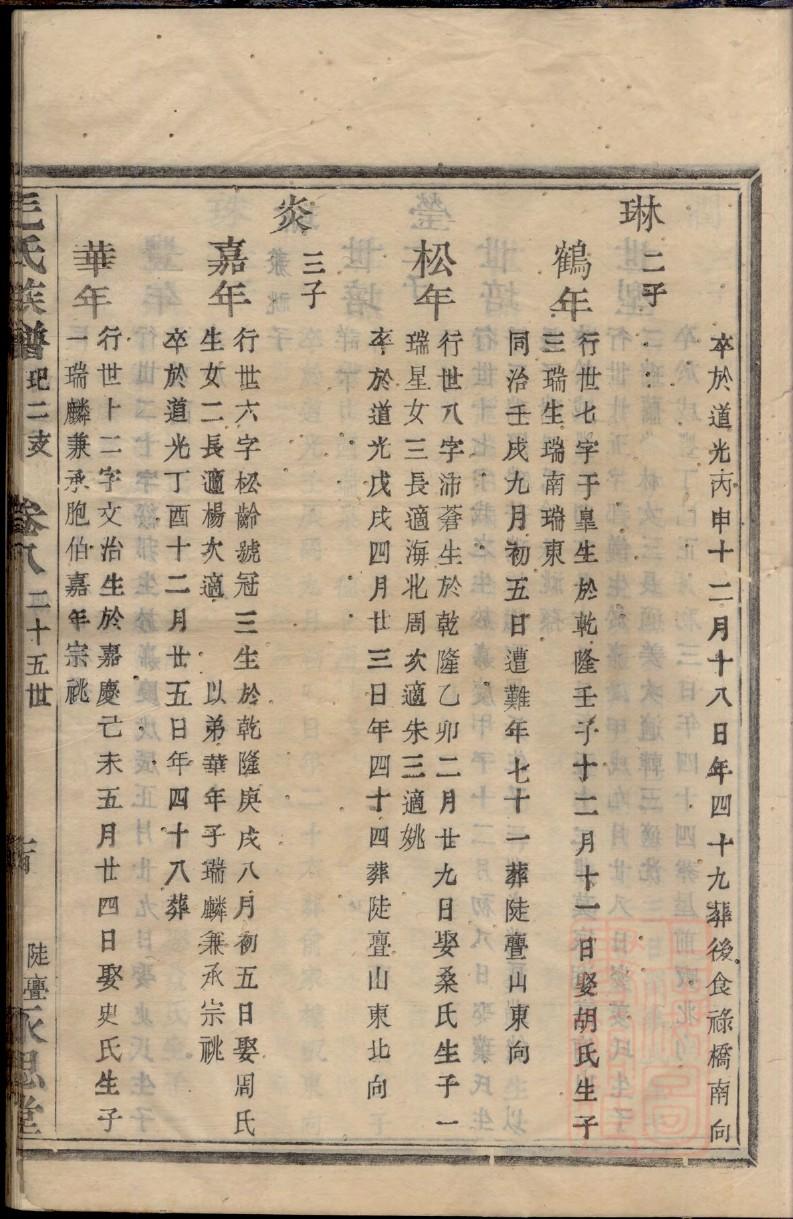 卒於道光丙申十二月十八日年四十九葬後食祿橋南向
琳 二子
鶴年
行世七字于臯生於乾隆壬子十二月十一日娶胡氏生子
三瑞生瑞南瑞東
同治壬戌九月初五日遭難年七十一葬陡亹山東向
松年
行世八字沛蒼生於乾隆乙卯二月廿九日娶桑氏生子一
瑞星女三長適海北周次適朱三適姚
卒於道光戊戌四月廿三日年四十四葬陡亹山東北向
炎 三子
嘉年
行世六字松齡號冠三生於乾隆庚戌八月初五日娶周氏
生女二長適楊次適 以弟華年子瑞麟兼承宗祧
卒於道光丁酉十二月廿五日年四十八葬
華年
行世十二字文治生於嘉慶己未五月廿四日娶史氏生子
一瑞麟兼承胞伯嘉年宗祧
毛氏族譜 圯二支 卷八 二十五世 陡亹永思堂